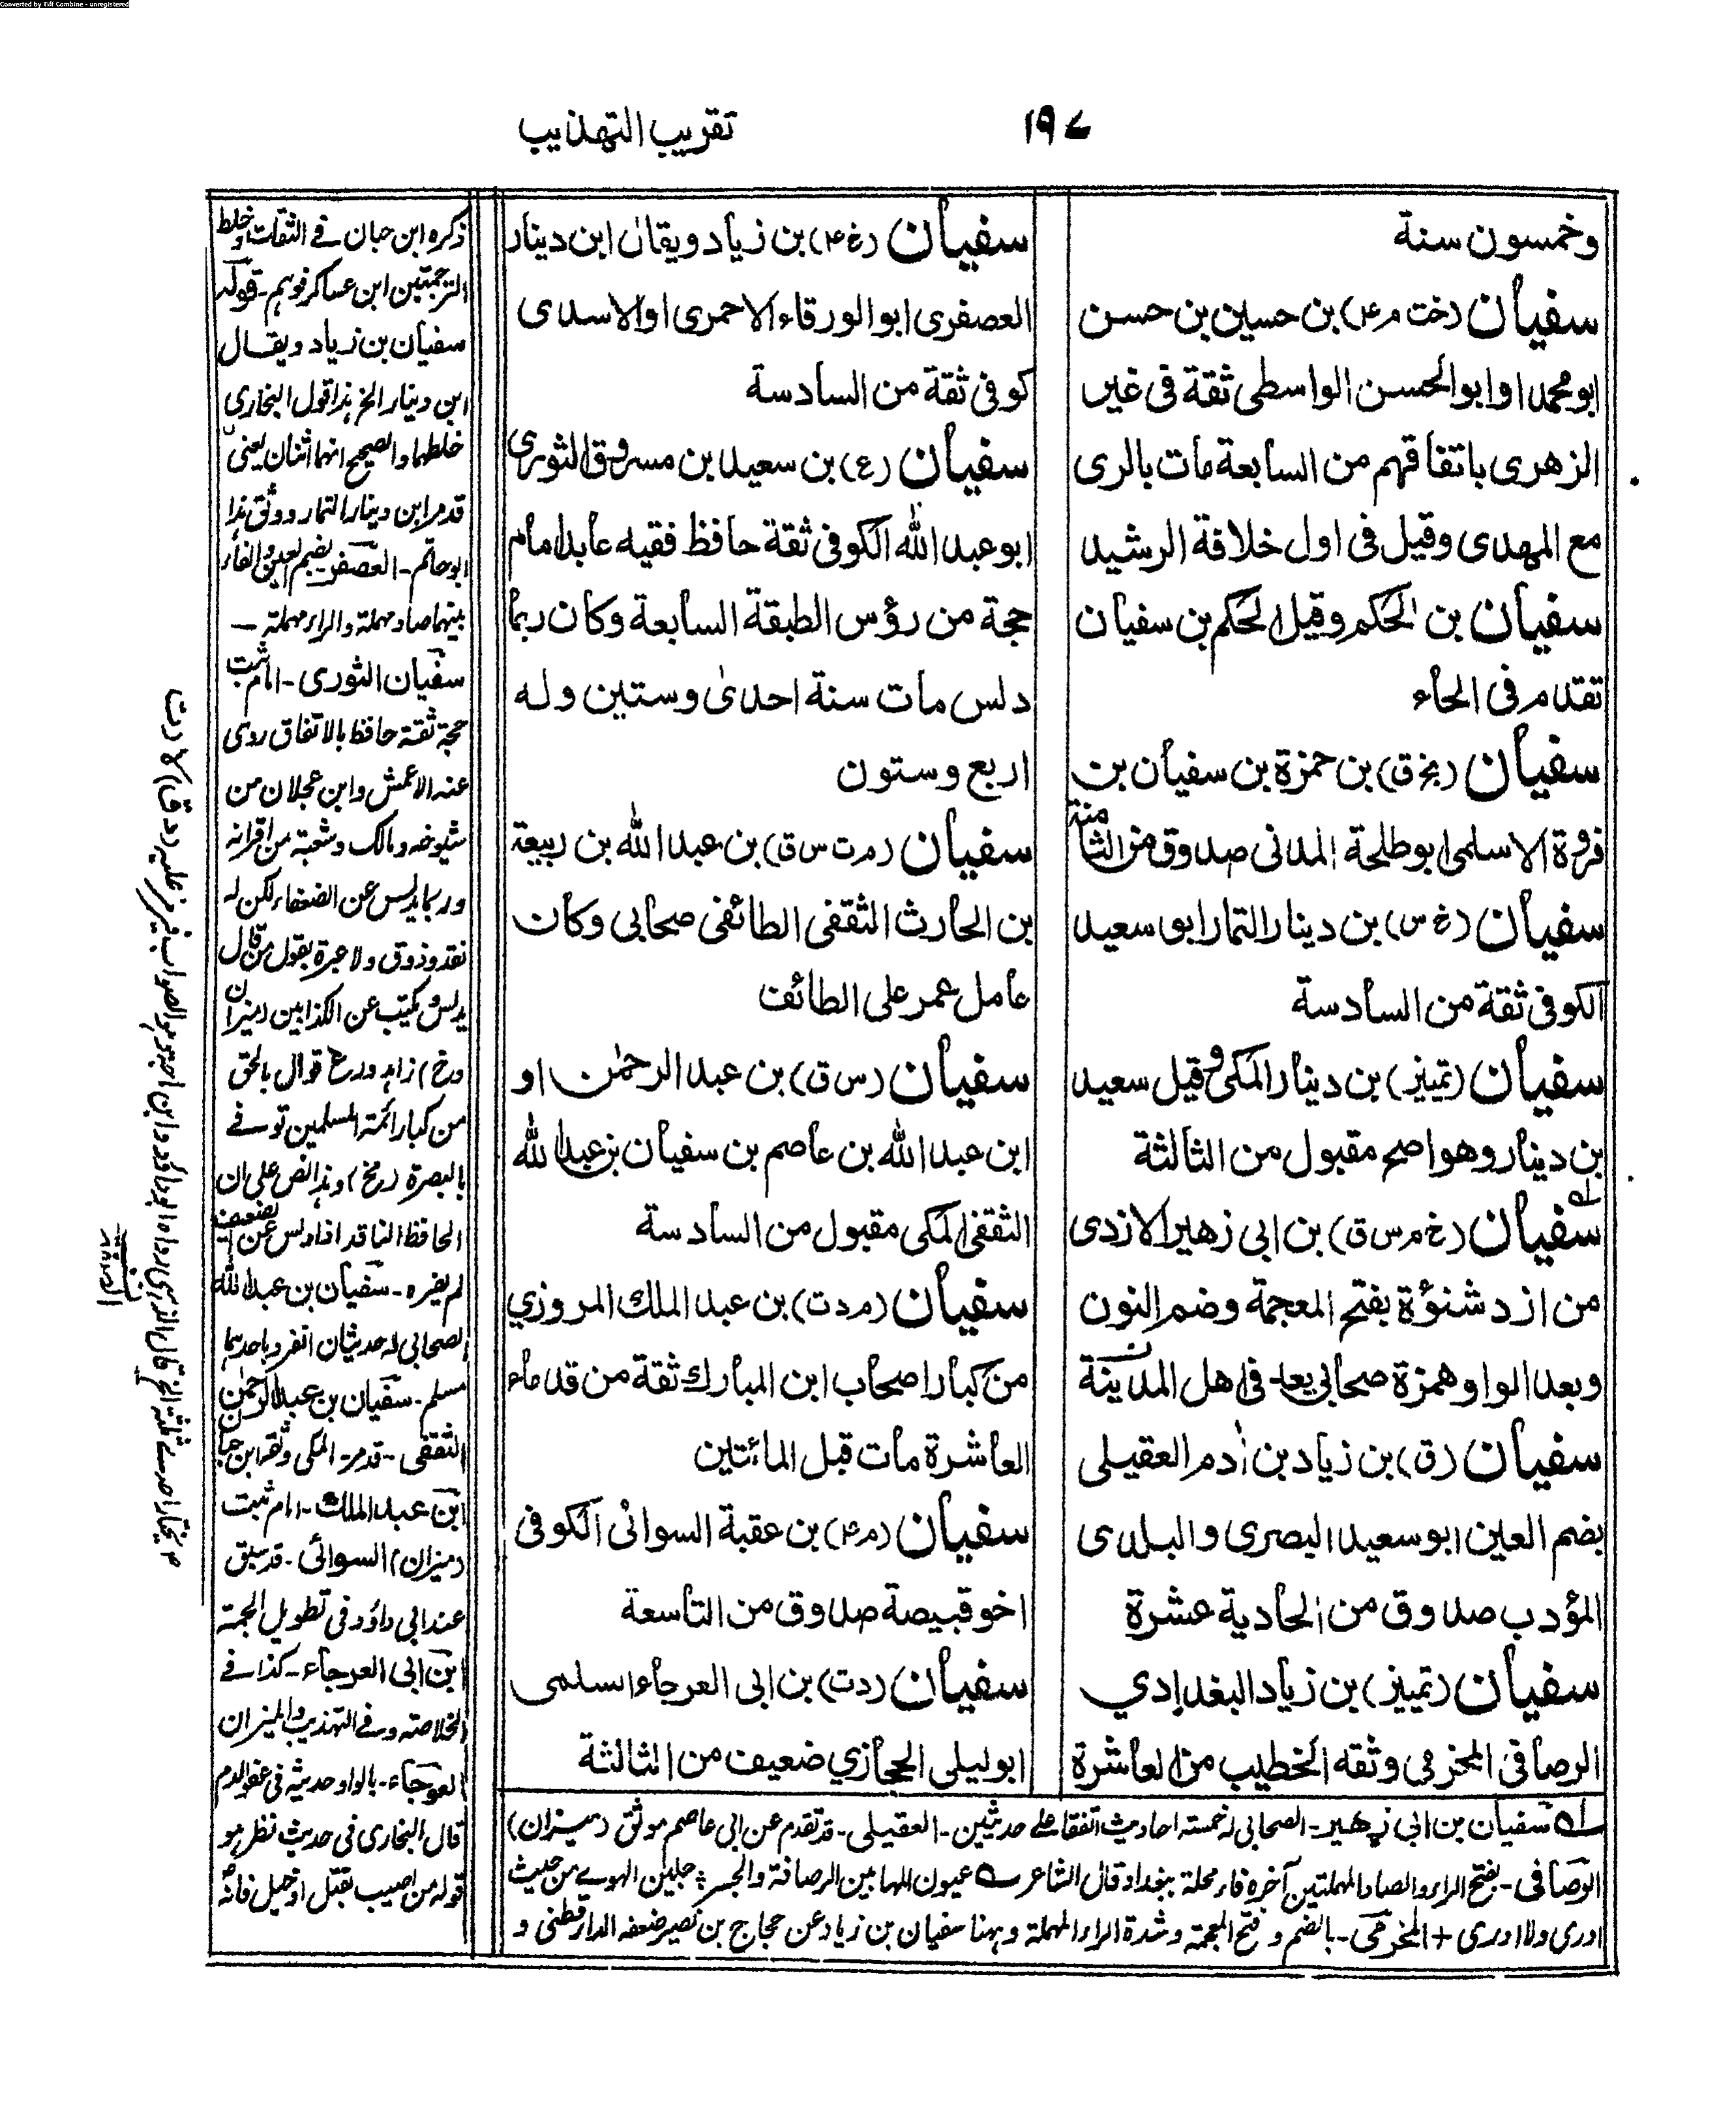 Converted by Tiff Combine - unregistered
١٩٧
تقريب التهذيب
وخمسون سنة
سفيان (خت م ۴) بن حسين بن حسن
ابو محمد او ابو الحسن الواسطى ثقة فى غير
الزهرى باتفاقهم من السابعة مات بالرى
مع المهدى وقيل فى اول خلافة الرشيد
سفيان بن الحكم وقيل الحكم بن سفيان
تقدم فى الحاء
سفيان (بخ ق) بن حمزة بن سفيان بن
فروة الاسلمى ابو طلحة المدنى صدوق من الثامنة
سفيان (خ س) بن دينار التمار ابو سعيد
الكوفى ثقة من السادسة
سفيان (تمييز) بن دينار المكى وقيل سعيد
بن دينار وهو اصح مقبول من الثالثة
سفيان (خ م س ق) بن ابى زهير الازدى
من ازد شنؤة بفتح المعجمة وضم النون
وبعد الواو همزة صحابى يعد فى اهل المدينة
سفيان (ق) بن زياد بن أدم العقيلى
بضم العين ابو سعيد البصرى والبلدى
المؤدب صدوق من الحادية عشرة
سفيان (تمييز) بن زياد البغدادي
الرصافى المخرمى وثقه الخطيب من العاشرة
سفيان (خ ۴) بن زياد ويقال ابن دينار
العصفرى ابو الورقاء الاحمرى او الاسدى
كوفى ثقة من السادسة
سفيان (ع) بن سعيد بن مسروق الثورى
ابو عبد الله الكوفى ثقة حافظ فقيه عابد امام
حجة من رؤس الطبقة السابعة وكان ربما
دلس مات سنة احدى وستين وله
اربع وستون
سفيان (م ت س ق) بن عبد الله بن ربيعة
بن الحارث الثقفى الطائفى صحابى وكان
عامل عمر على الطائف
سفيان (س ق) بن عبد الرحمن او
ابن عبد الله بن عاصم بن سفيان بن عبد الله
الثقفى المكى مقبول من السادسة
سفيان (م د ت) بن عبد الملك المروزي
من كبار اصحاب ابن المبارك ثقة من قدماء
العاشرة مات قبل المائتين
سفيان (م ۴) بن عقبة السوائى الكوفى
اخو قبيصة صدوق من التاسعة
سفيان (د ت) بن ابى العرجاء السلمى
ابو ليلى الحجازي ضعيف من الثالثة
ذكره ابن حبان فے الثقات وخلط
الترجمتين ابن عساكر فوہم - قوله
سفيان بن زياد ويقال
ابن دينار الخ ہذا قول البخارى
خلطہا والصحيح انہما اثنان يعنى
قدم ابن دينار التمار ووثق ہذا
ابو حاتم - العصفرى بضم العين والفاء
بينہما صاد مہملة والراء مہملة -
سفيان الثورى - امام ثبت
حجة ثقة حافظ بالاتفاق روى
عنه الاعمش وابن عجلان من
شيوخه ومالك وشعبة من اقرانه
وربما يدلس عن الضعفاء لكن له
نقد وذوق ولا عبرة بقول من قال
يدلس ويكتب عن الكذابين (ميزان
ورخ) زاہد ورع قوال بالحق
من كبار ائمة المسلمين توفے
بالبصرة (مخ) وہذا نص على ان
الحافظ الناقد اذا دلس عن الضعيف
لم يضره - سفيان بن عبد الله
الصحابى له حديثان انفرد باحدہما
مسلم - سفيان بن عبد الرحمن
الثقفى - قدم - المكى وثقه ابن حبان
ابن عبد الملك - امام ثبت
(ميزان) السوائى - قد سبق
عند ابى داؤد فى تطويل الجمة
ابن ابى العرجاء - كذا فے
الخلاصة وفے التہذيب والميزان
العوجاء - بالواو حديثه فى عفو الدم
قال البخارى فى حديث نظر ہو
قوله من اصيب بقتل او خبل فانه
له سفيان بن ابى زهير - الصحابى له خمسة احاديث اتفقا علے حديثين - العقيلى - قد تقدم عن ابى عاصم موثق (ميزان)
الرصافى - بفتح الراء والصاد المہملتين آخره فاء محلة ببغداد قال الشاعر عيون المہا بين الرصافة والجسر جلبن الہوے من حيث
ادرى ولا ادرى + المخرمى - بالضم وفتح المعجمة وشدة الراء المہملة وہہنا سفيان بن زياد عن حجاج بن نصير ضعفه الدارقطنى و